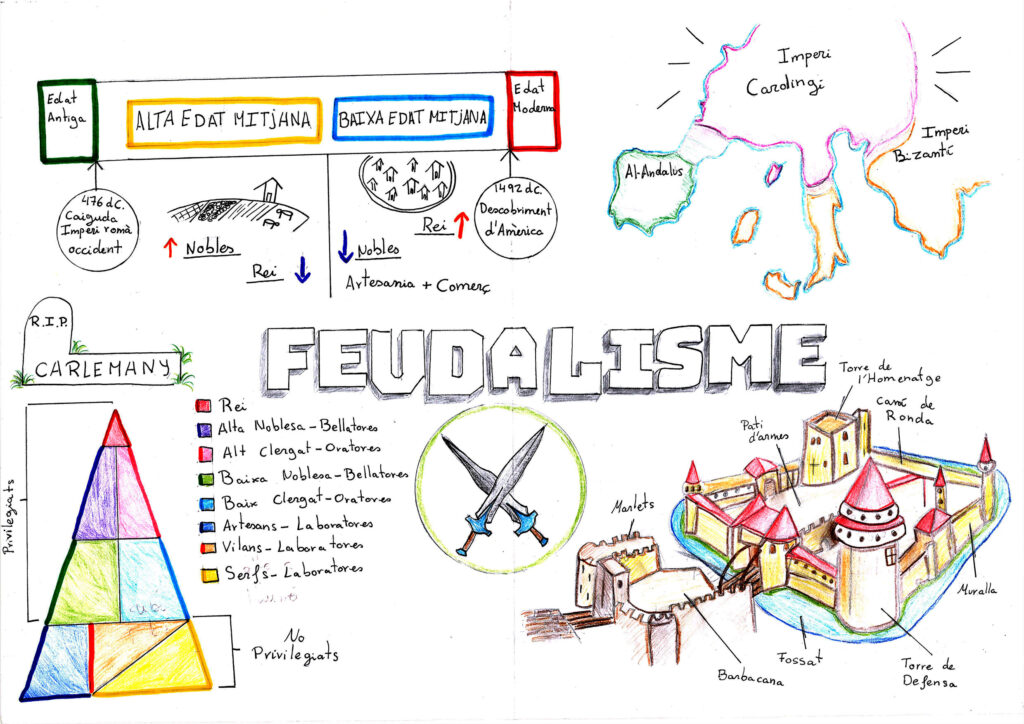 Edat
Antiga
ALTA EDAT MITJANA
BAIXA EDAT MITJANA
Edat
Moderna
476 d.C.
Caiguda
Imperi romà
occident
Nobles
Rei
Rei
Nobles
Artesania + Comerç
1492 d.C.
Descobriment
d'Amèrica
Imperi
Carolingi
Imperi
Bizantí
Al-Andalus
R.I.P.
CARLEMANY
FEUDALISME
Privilegiats
Rei
Alta Noblesa-Bellatores
Alt Clergat-Oratores
Baixa Noblesa-Bellatores
Baix Clergat-Oratores
Artesans-Laboratores
Vilans-Laboratores
Serfs-Laboratores
No
Privilegiats
Torre de
l'Homenatge
Camí de
Ronda
Pati
d'armes
Marlets
Muralla
Barbacana
Fossat
Torre de
Defensa